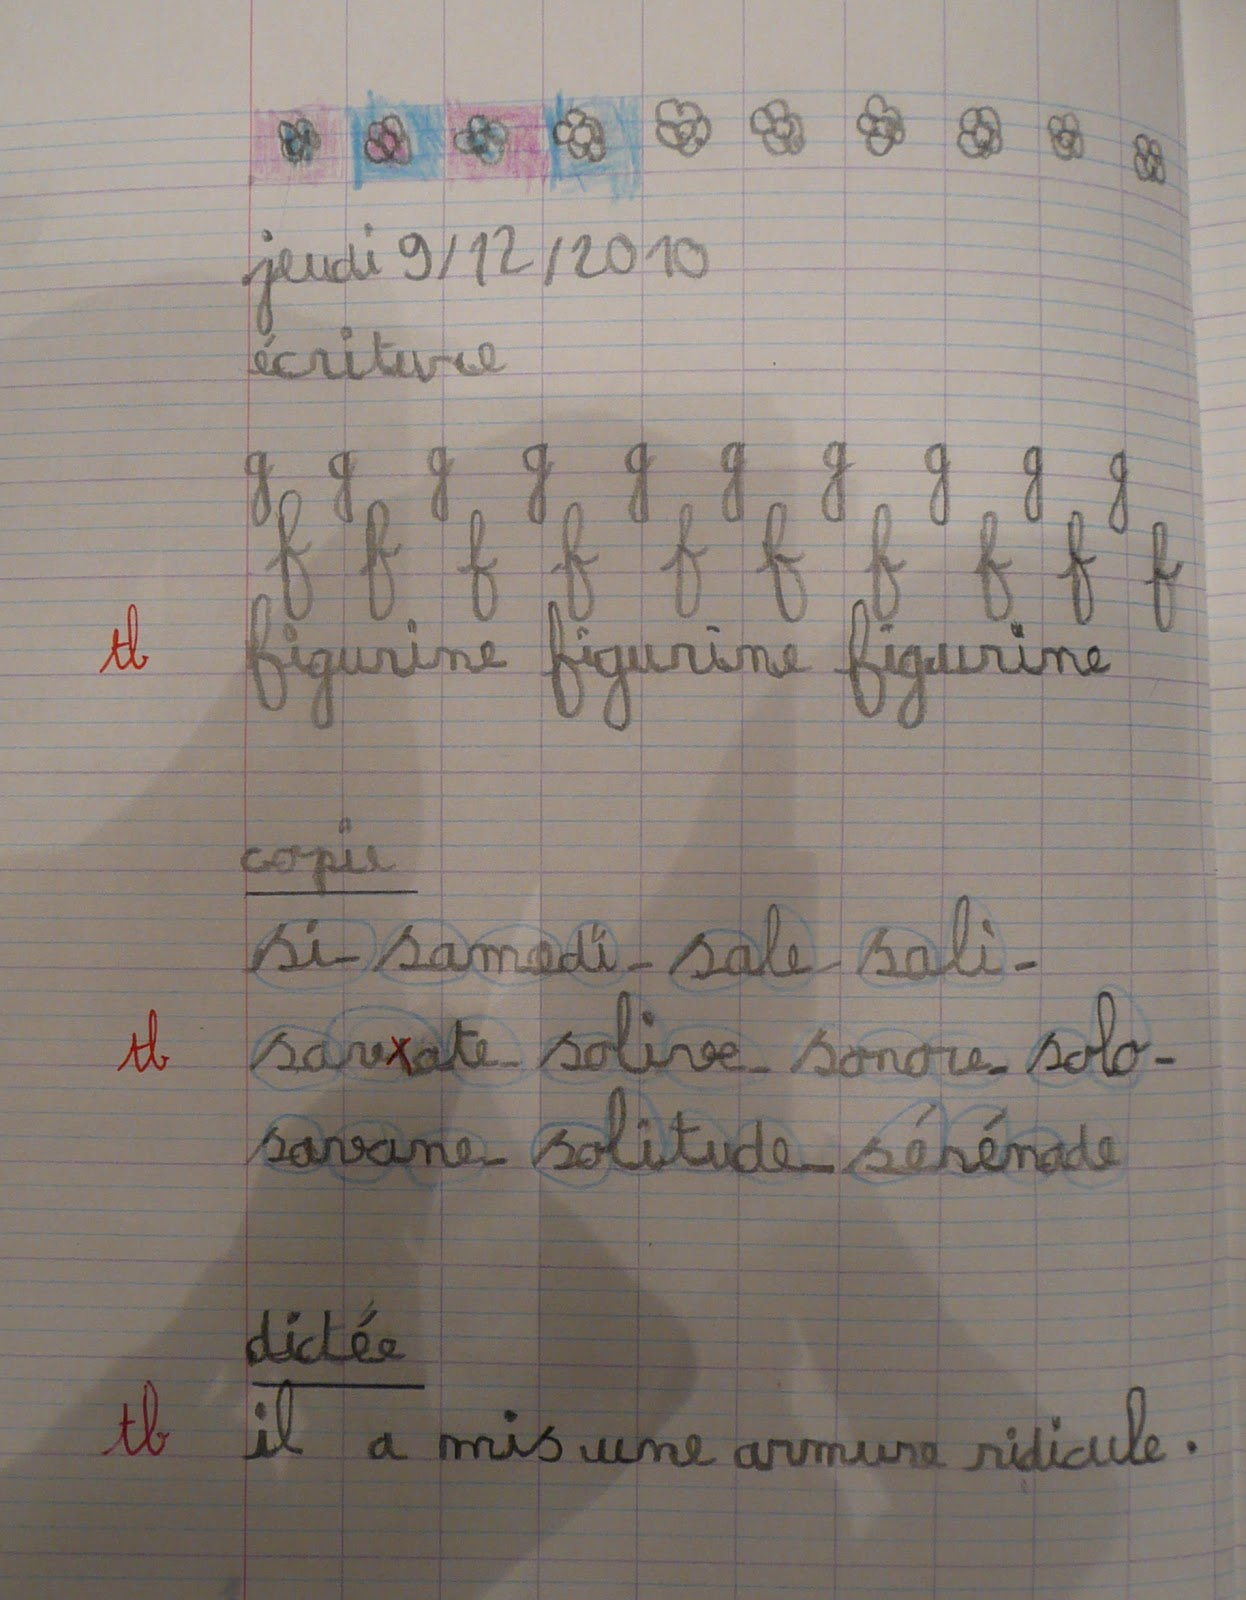 jeudi 9/12/2010
écriture
g g g g g g g g g g
f f f f f f f f f f
tb figurine figurine figurine
copie
si - samedi - sale - sali -
tb savxate - solive - sonore - solo -
savane - solitude - sérénade
dictée
tb il a mis une armure ridicule.